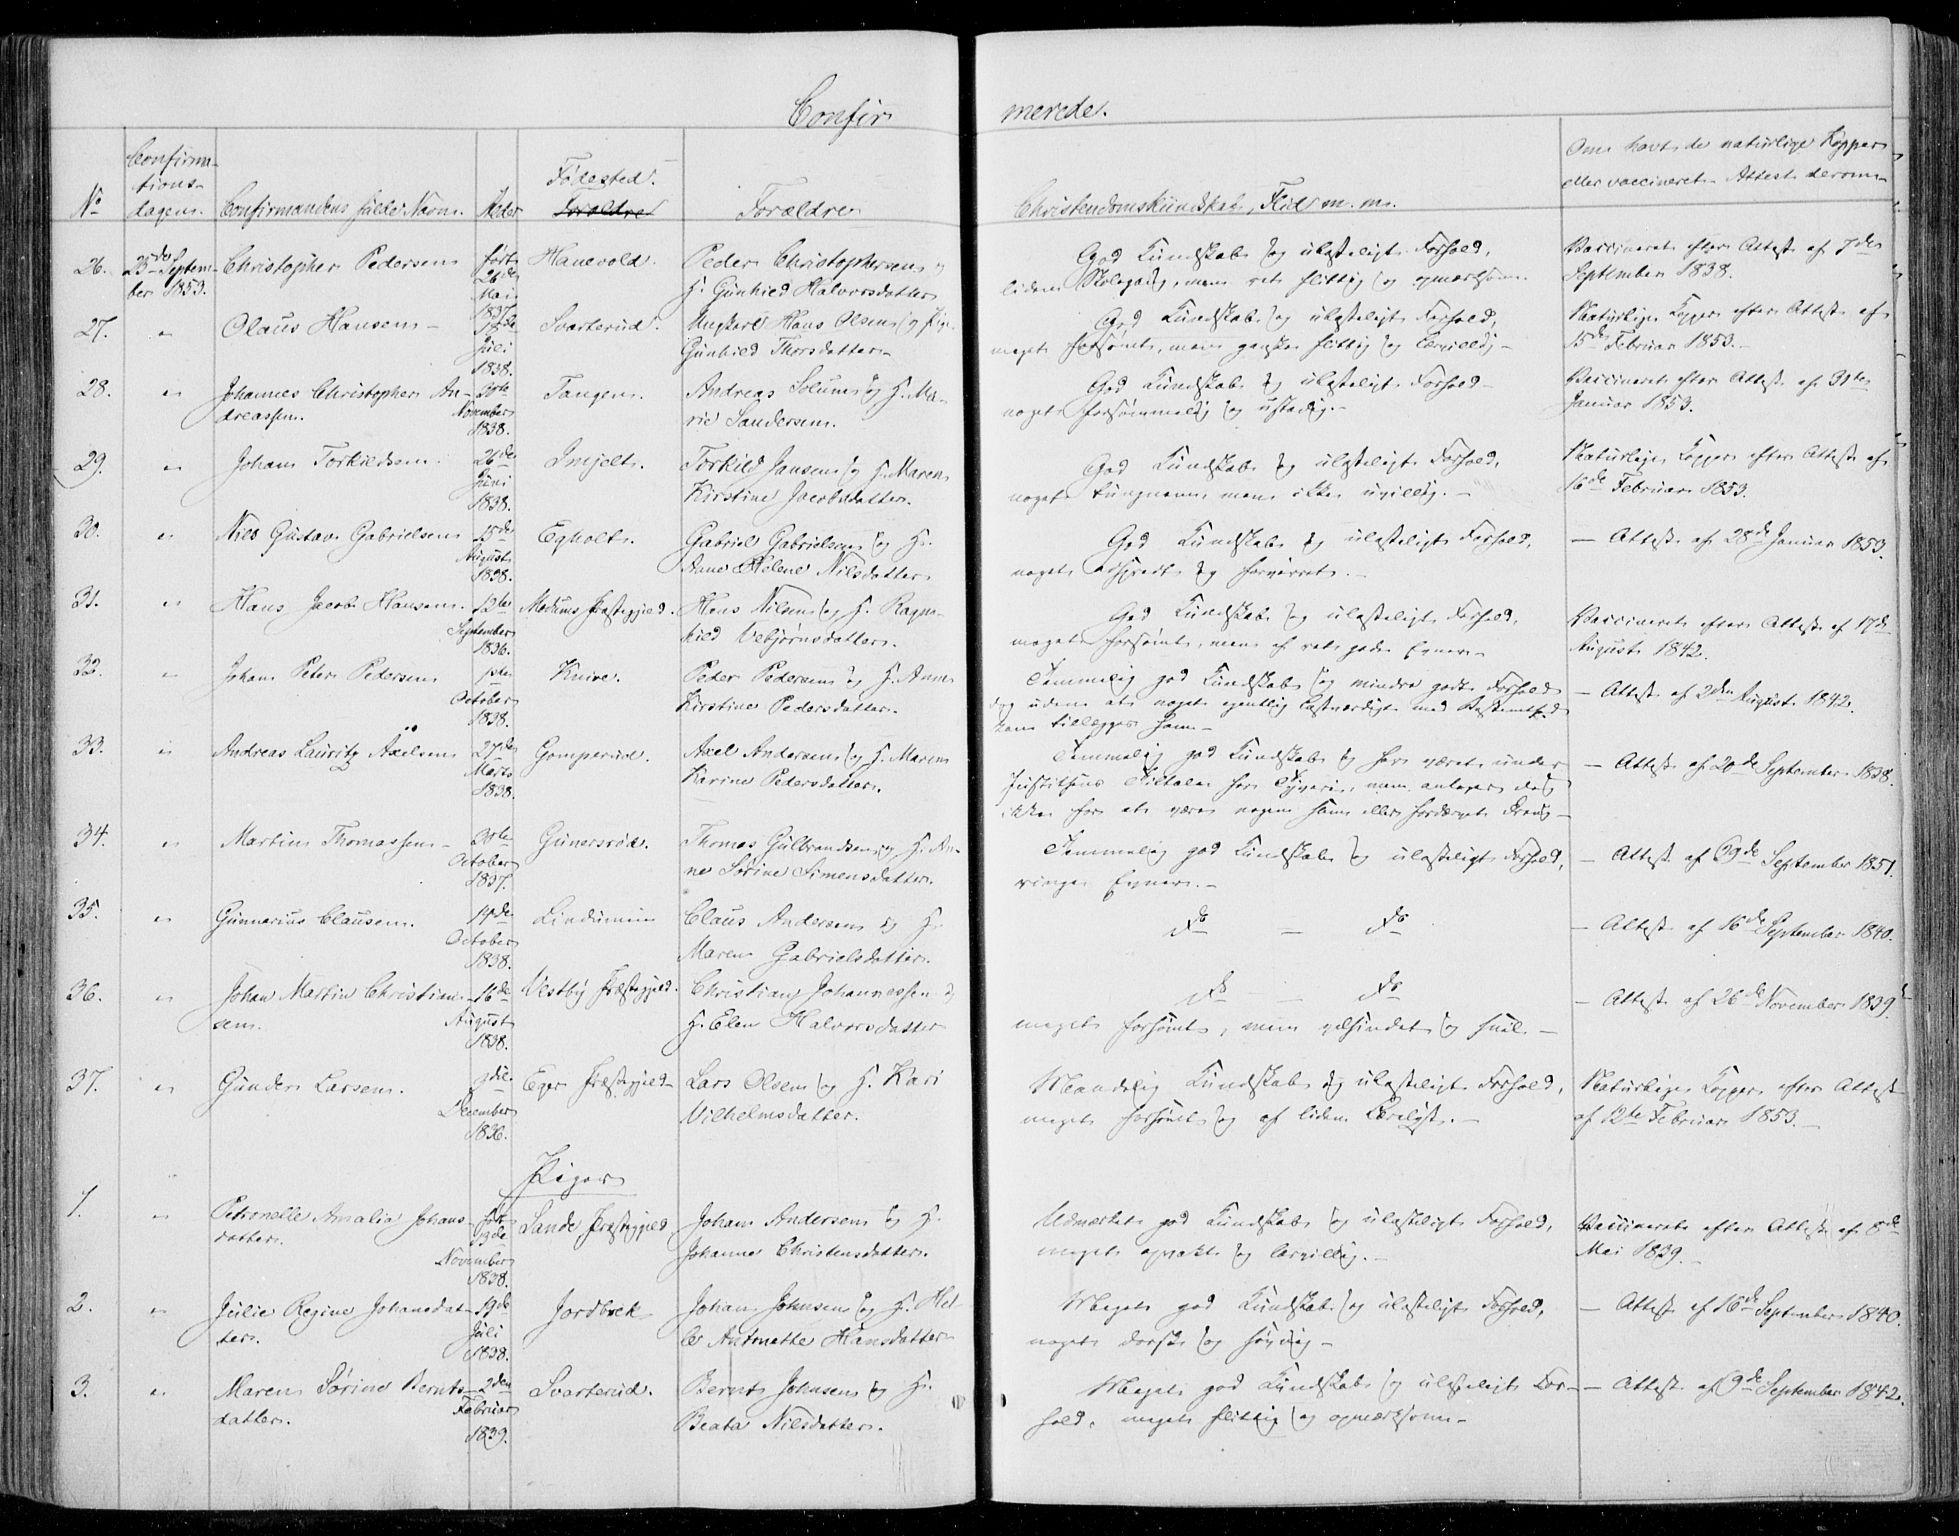 Confir
merede.
No
Confirma-
tions-
dagen.
Confirmandens fulde Navn.
Alder
Fødested.
Forældre
Forældre
Christendomskundskab, Flid m. m.
Om havt de naturlige Kopper
eller vaccineret. Attest derom
26. 25de Septem- Christopher Pedersen født Hanevold. Peder Christophersen og God Kundskab og ulasteligt Forhold, Vaccineret efter Attest af 7de
ber 1853. 26de H. Gunhild Halvorsdatter liden Skolegang, men ret flittig og opmærksom. September 1838.
Mai
1837.
27. " Olaus Hansen - Svarterud. Ungkarl Hans Olsen og Pige God Kundskab og ulasteligt Forhold, Naturlige Kopper efter Attest af
Juli Gunhild Thorsdatter. meget forsømt, men ganske flittig og lærvillig - 15de Februar 1853.
1838.
28. " Johannes Christopher An- Tangen. Andreas Solum og H. Ma- God Kundskab og ulasteligt Forhold - Vaccineret efter Attest af 31te
dreassen. November rie Sandersen. noget forsømmelig og ustadig. - Januar 1853.
1838.
29. " Johan Torkildsen. 26de Injelt. Torkild Jansen og H. Maren God Kundskab og ulasteligt Forhold, Naturlige Kopper efter Attest af
Juni Kirstine Jacobsdatter. noget tungnem men ikke uvillig. - 16de Februar 1853.
1838.
30. " Nils Gustav Gabrielsen 15de Egholt. Gabriel Gabrielsen og H. God Kundskab og ulasteligt Forhold, - Attest af 28de Januar 1853.
August Anne Helene Nilsdatter. noget adspredt og forvirret. -
1838.
31. " Hans Jacob Hansen. 12te Modums Præstegjeld. Hans Nilsen og H. Ragn- God Kundskab og ulasteligt Forhold, Vaccineret efter Attest af 17de
September hild Vebjørnsdatter. meget forsømt, men af ret gode Evner - August 1842.
1836.
32. " Johan Peter Pedersen 1ste Knive. Peter Pedersen og H. Anne Temmelig god Kundskab og mindre godt Forhold - Attest af 2den August 1842.
October Kirstine Pedersdatter. dog uden at noget egentlig lastværdigt med Bestemthed
1838. kan tillægges ham -
33. " Andreas Lauritz Axelsen 27de Gomperud. Axel Andersen og H. Maren Temmelig god Kundskab og har været under - Attest af 20de September 1838.
Marts Karine Pedersdatter. Justitsens Tiltale for Tyveri, men antages dog
1838. ikke for at være nogen slem eller fordærvet Dreng -
34. " Martin Thomassen - 30te Gunersrød. Thomas Gulbrandsen og H. An- Temmelig god Kundskab og ulasteligt Forhold, - Attest af 9de September 1851.
October ne Sørine Simensdatter. ringe Evner. -
1837.
35. " Gunnarius Clausen. 14de Lindum Claus Andersen og H. do - do - Attest af 16de September 1840.
October Maren Gabrielsdatter.
1838.
36. " Johan Martin Christian- 16de Vestby Præstegjeld. Christian Johannessen og do - do - Attest af 26de November 1839.
sen. August H. Elen Halvorsdatter meget forsømt, men velsindet og snil. -
1838.
37. " Gunder Larsen. 9de Eger Præstegjeld - Lars Olsen og H. Kari Maadelig Kundskab og ulasteligt Forhold, Naturlige Kopper efter Attest
December Vilhelmsdatter. meget forsømt og af liden Lærelyst. - af 12te Februar 1853. -
1836.
Piger
1. " Petronelle Amalia Johans- født Sande Præstegjeld Johan Andersen og H. Udmærket god Kundskab og ulasteligt Forhold, Vaccineret efter Attest af 8de
datter. 19de Johanne Christensdatter. meget opvakt og lærvillig. - Mai 1839. -
November
1838.
2. " Julie Regine Johansdat- 19de Jordbræk Johan Johnsen og H. Hel- Meget god Kundskab og ulasteligt Forhold, - Attest af 16de September 1840.
ter. Juli le Antonette Hansdatter noget dorsk og søvnig -
1838.
3. " Maren Sørine Bernts- 2den Svarterud. Bernt Johnsen og H. Meget god Kundskab og ulasteligt For- - Attest af 9de September 1842.
datter. Februar Beata Nilsdatter. hold. meget flittig og opmærksom -
1839.